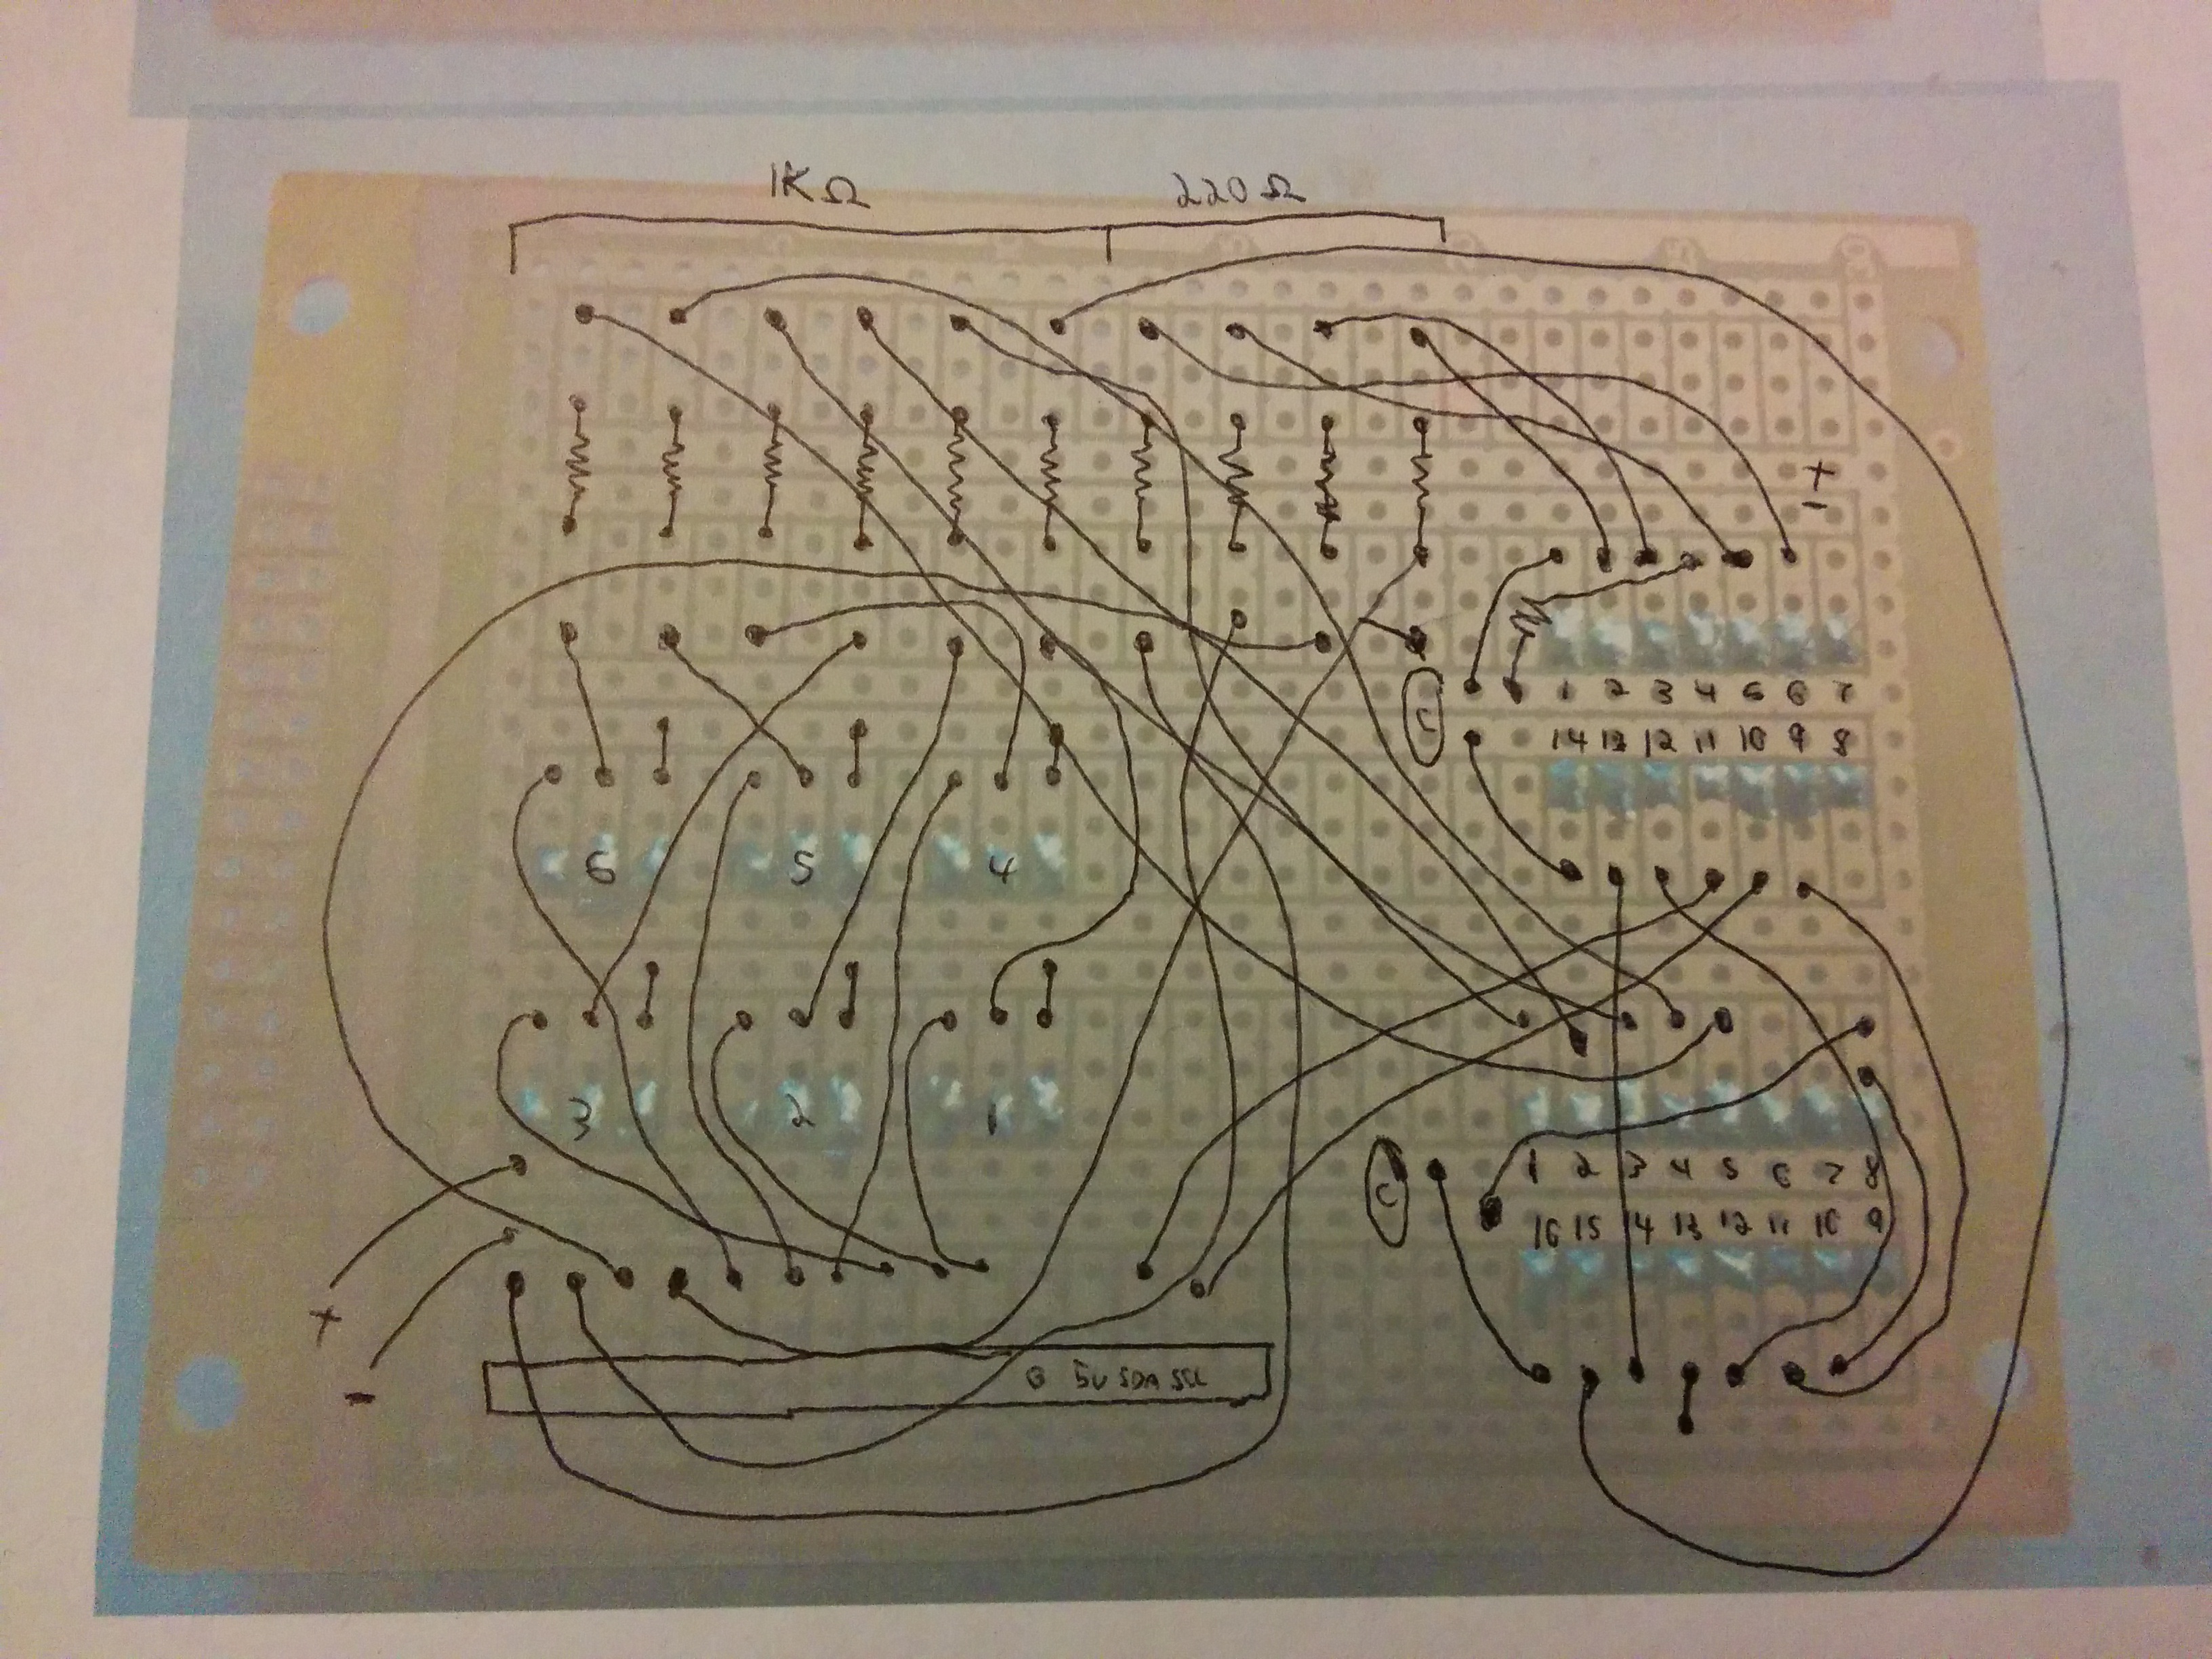 1KΩ 220Ω
+
-
C 1 2 3 4 5 6 7
14 13 12 11 10 9 8
6 5 4
3 2 1
C 1 2 3 4 5 6 7 8
16 15 14 13 12 11 10 9
+
-
G 5V SDA SCL